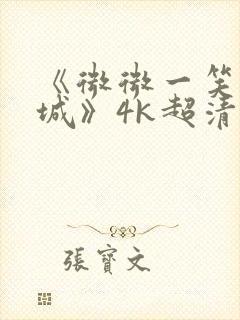 《微微一笑
城》4K超清
張寶文